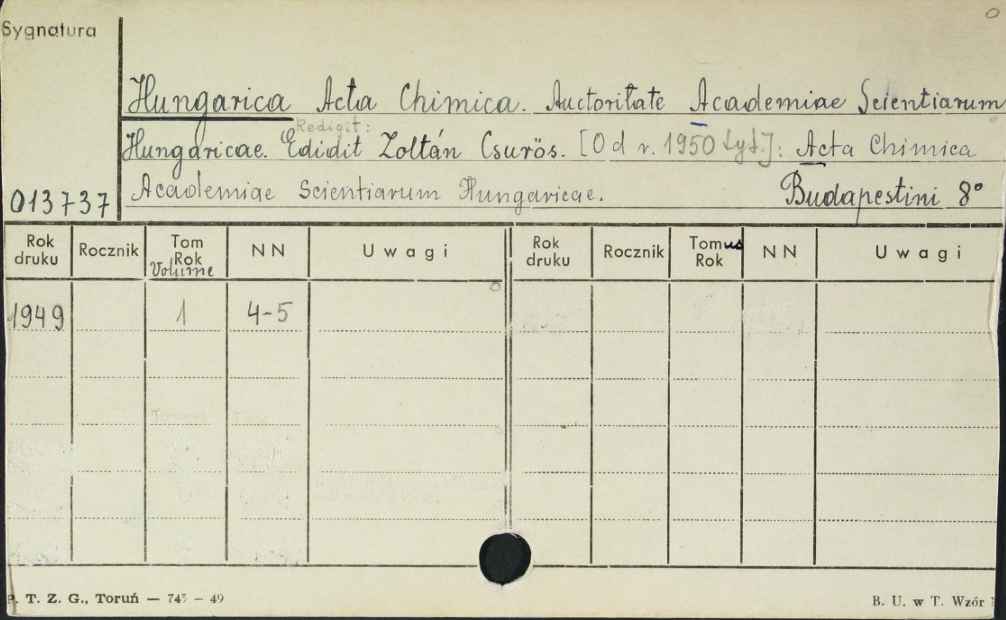 Sygnatura
Hungarica Acta Chimica. Auctoritate Academiae Scientiarum
Redigit:
Hungaricae. Edidit Zoltán Csürös. [Od r. 1950 tyt.]: Acta Chimica
013737 Academiae Scientiarum Hungaricae. Budapestini 8°
Rok druku Rocznik Tom Rok Volume NN Uwagi Rok druku Rocznik Tomus Rok NN Uwagi
1949 1 4-5
P. T. Z. G., Toruń — 745 — 49 B. U. w T. Wzór